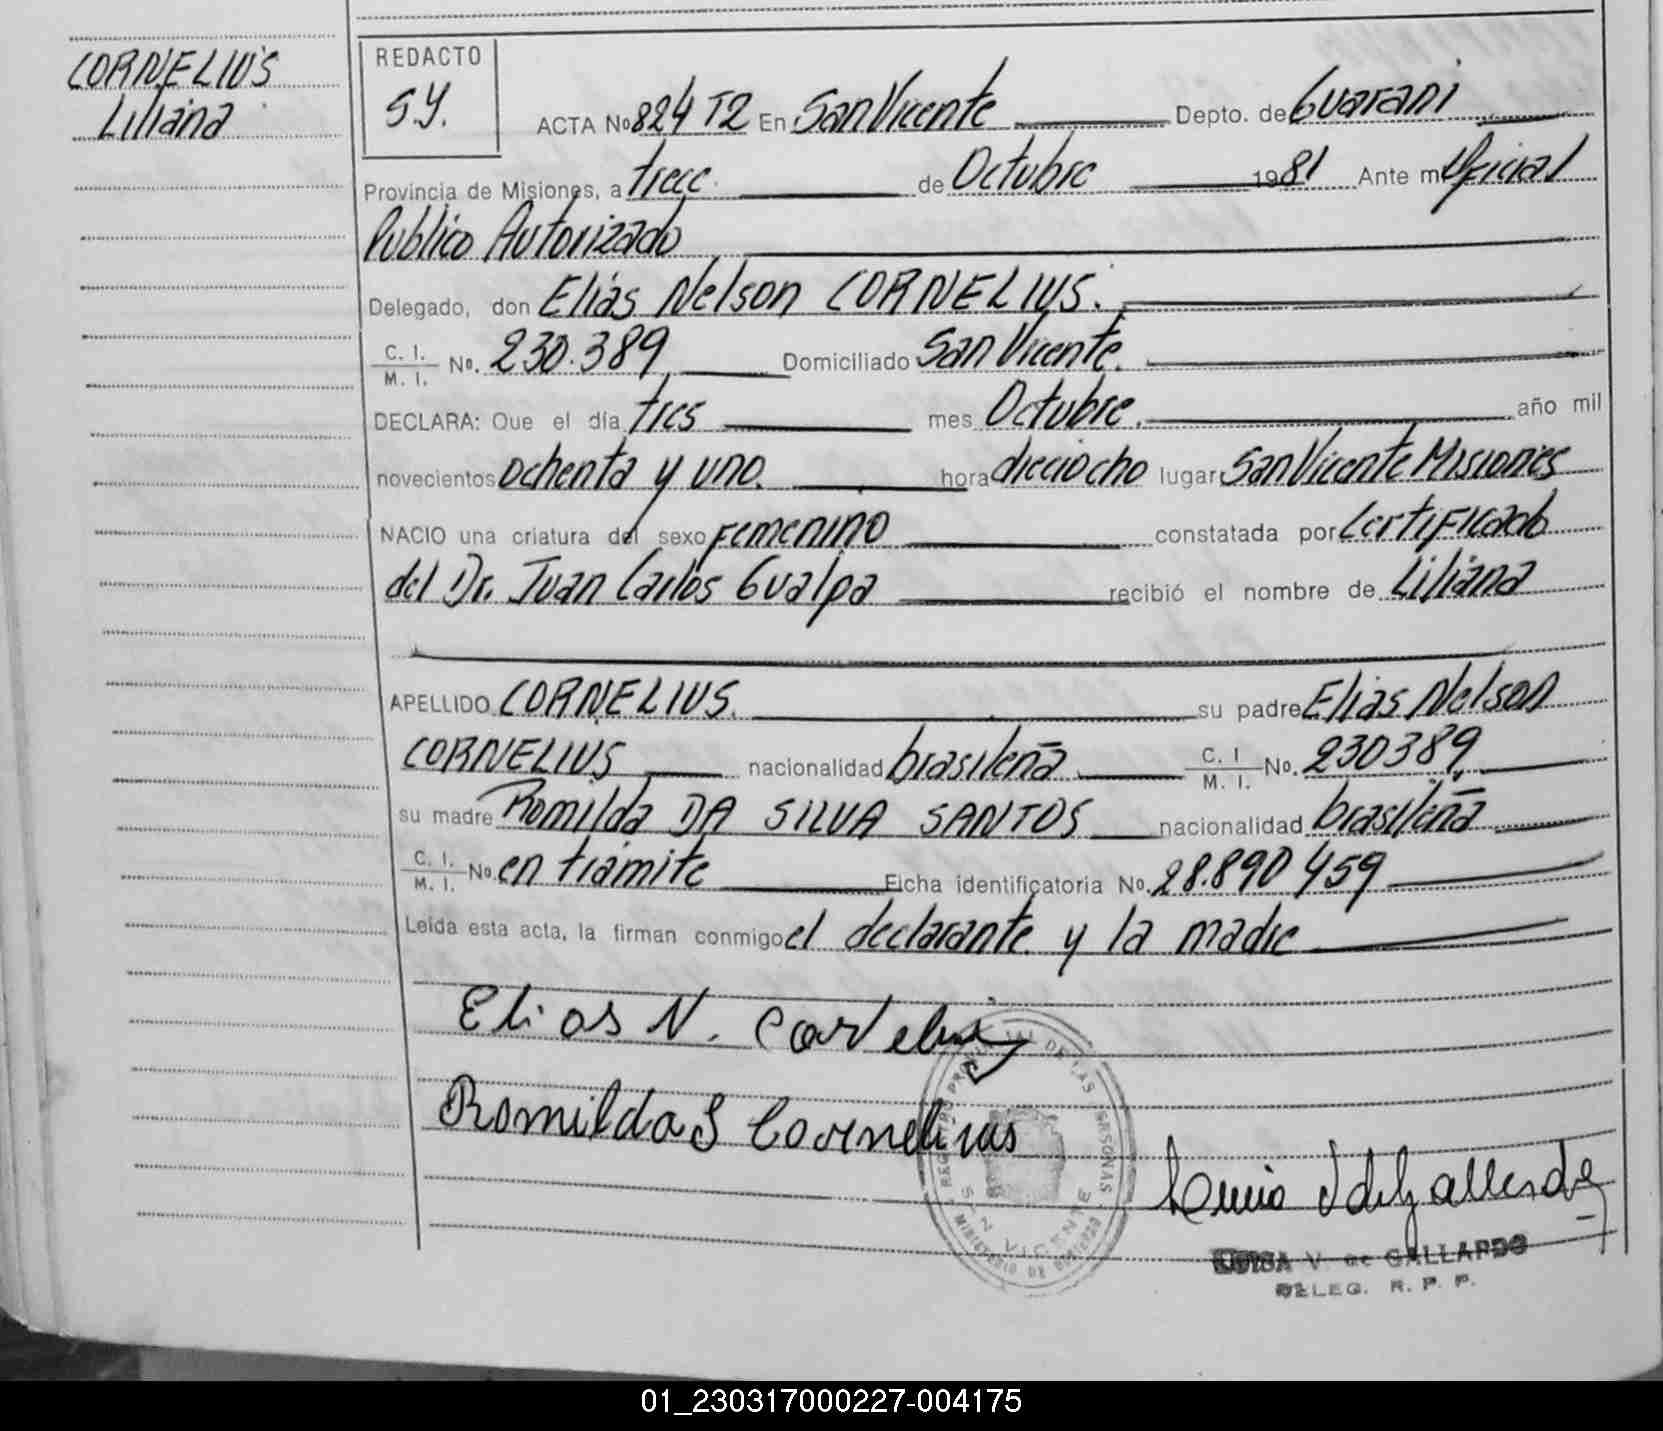 CORNELIUS
Liliana
REDACTO
S.Y.
ACTA No 824 T2 En San Vicente Depto. de Guaraní
Provincia de Misiones, a trece de Octubre 1981 Ante mí Oficial
Publico Autorizado
Delegado, don Elías Nelson CORNELIUS.
C. I. / M. I. No. 230.389 Domiciliado San Vicente.
DECLARA: Que el día tres mes Octubre. año mil
novecientos ochenta y uno. hora dieciocho lugar San Vicente Misiones
NACIO una criatura del sexo Femenino constatada por Certificado
del Dr. Juan Carlos Gualpa recibió el nombre de Liliana
APELLIDO CORNELIUS. su padre Elias Nelson
CORNELIUS nacionalidad brasileña C. I / M. I. No. 230389
su madre Romilda DA SILVA SANTOS nacionalidad brasileña
C. I. / M. I. No. en trámite Ficha identificatoria No. 28.890 459
Leída esta acta, la firman conmigo el declarante y la madre
Elias N. Cornelius
Romilda S Cornelius
REGISTRO PROVINCIAL DE LAS PERSONAS
SAN VICENTE
MINISTERIO DE GOBIERNO
V. de GALLARDO
DELEG. R. P. P.
01_230317000227-004175